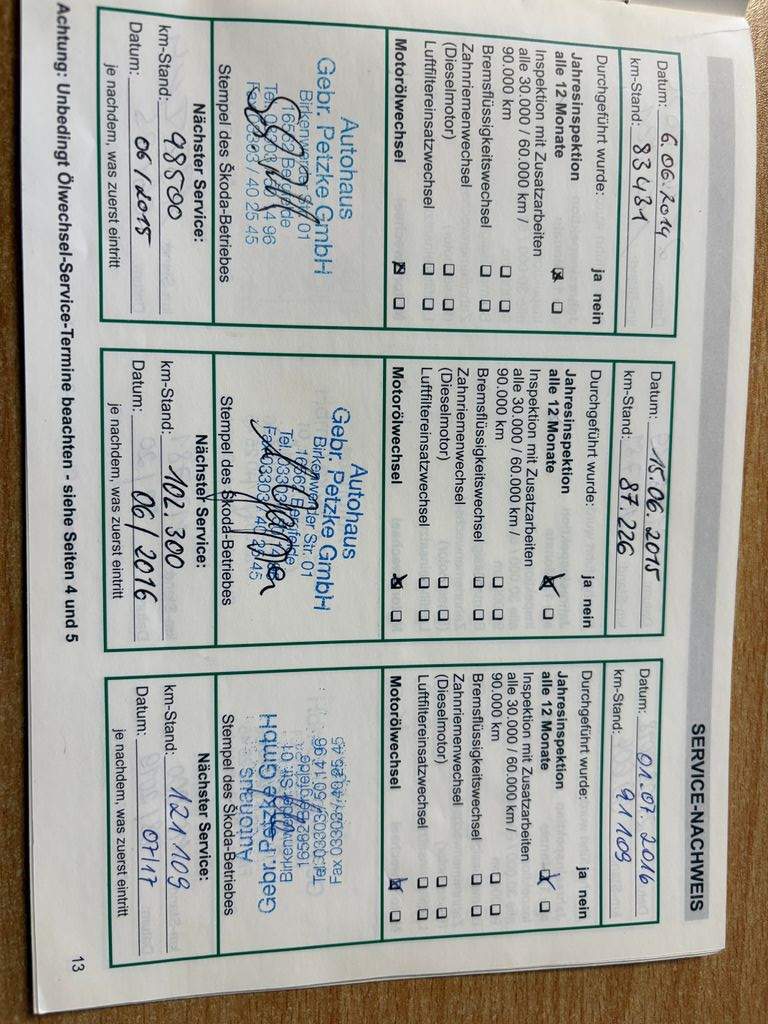 SERVICE-NACHWEIS
Datum: 6.06.2014
km-Stand: 83431
Durchgeführt wurde: ja nein
Jahresinspektion
alle 12 Monate ☒ ☐
Inspektion mit Zusatzarbeiten
alle 30.000 / 60.000 km /
90.000 km ☐ ☐
Bremsflüssigkeitswechsel ☐ ☐
Zahnriemenwechsel
(Dieselmotor) ☐ ☐
Luftfiltereinsatzwechsel ☐ ☐
Motorölwechsel ☒ ☐
Autohaus
Gebr. Petzke GmbH
Birkenwerder Str. 01
16562 Bergfelde
Tel. 03303 / 50 14 96
Fax 03303 / 40 25 45
Stempel des Škoda-Betriebes
Nächster Service:
km-Stand: 98500
Datum: 06/2015
je nachdem, was zuerst eintritt
Datum: 15.06.2015
km-Stand: 87.226
Durchgeführt wurde: ja nein
Jahresinspektion
alle 12 Monate ☒ ☐
Inspektion mit Zusatzarbeiten
alle 30.000 / 60.000 km /
90.000 km ☐ ☐
Bremsflüssigkeitswechsel ☐ ☐
Zahnriemenwechsel
(Dieselmotor) ☐ ☐
Luftfiltereinsatzwechsel ☐ ☐
Motorölwechsel ☒ ☐
Autohaus
Gebr. Petzke GmbH
Birkenwerder Str. 01
16562 Bergfelde
Tel. 03303 / 50 14 96
Fax 03303 / 40 25 45
Stempel des Škoda-Betriebes
Nächster Service:
km-Stand: 102.300
Datum: 06/2016
je nachdem, was zuerst eintritt
Datum: 01.07.2016
km-Stand: 91109
Durchgeführt wurde: ja nein
Jahresinspektion
alle 12 Monate ☒ ☐
Inspektion mit Zusatzarbeiten
alle 30.000 / 60.000 km /
90.000 km ☐ ☐
Bremsflüssigkeitswechsel ☐ ☐
Zahnriemenwechsel
(Dieselmotor) ☐ ☐
Luftfiltereinsatzwechsel ☐ ☐
Motorölwechsel ☒ ☐
Autohaus
Gebr. Petzke GmbH
Birkenwerder Str. 01
16562 Bergfelde
Tel. 03303 / 50 14 96
Fax 03303 / 40 25 45
Stempel des Škoda-Betriebes
Nächster Service:
km-Stand: 121109
Datum: 07/17
je nachdem, was zuerst eintritt
Achtung: Unbedingt Ölwechsel-Service-Termine beachten - siehe Seiten 4 und 5
13